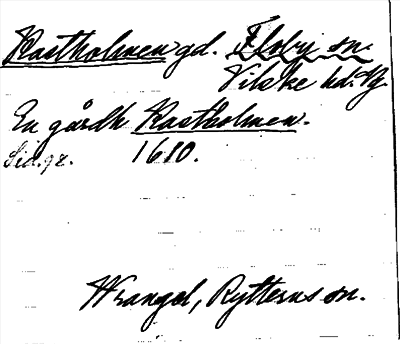 Kastholmen gd. Floby sn.
Vilske hd. Vg.
En gårdh Kastholmen.
Sid. 92. 1610.
Wrangel, Rytterns sn.